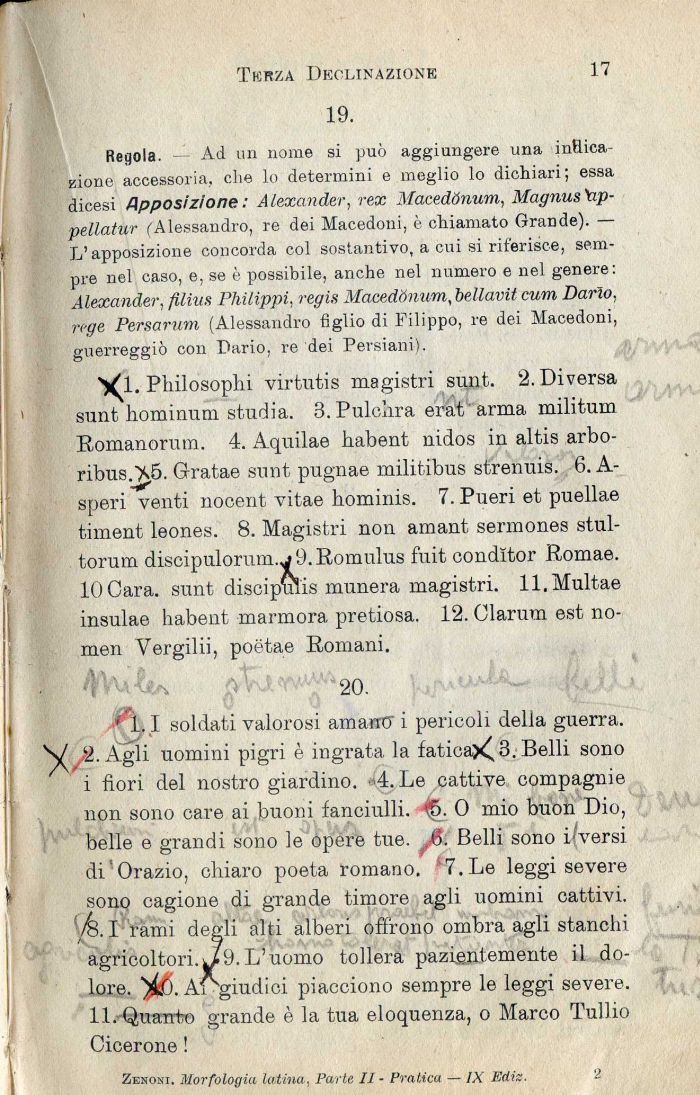 TERZA DECLINAZIONE 17
19.
Regola. — Ad un nome si può aggiungere una indica-
zione accessoria, che lo determini e meglio lo dichiari; essa
dicesi Apposizione: Alexander, rex Macedŏnum, Magnus ap-
pellatur (Alessandro, re dei Macedoni, è chiamato Grande). —
L'apposizione concorda col sostantivo, a cui si riferisce, sem-
pre nel caso, e, se è possibile, anche nel numero e nel genere:
Alexander, filius Philippi, regis Macedŏnum, bellavit cum Dario,
rege Persarum (Alessandro figlio di Filippo, re dei Macedoni,
guerreggiò con Dario, re dei Persiani).
arma
1. Philosophi virtutis magistri sunt. 2. Diversa
arm
sunt hominum studia. 3. Pulchra erat arma militum
nt
Romanorum. 4. Aquilae habent nidos in altis arbo-
ribus. 5. Gratae sunt pugnae militibus strenuis. 6. A-
speri venti nocent vitae hominis. 7. Pueri et puellae
timent leones. 8. Magistri non amant sermones stul-
torum discipulorum. 9. Romulus fuit condĭtor Romae.
10 Cara. sunt discipulis munera magistri. 11. Multae
insulae habent marmora pretiosa. 12. Clarum est no-
men Vergilii, poëtae Romani.
20.
Miles strenuus pericula belli
1. I soldati valorosi amano i pericoli della guerra.
2. Agli uomini pigri è ingrata la fatica. 3. Belli sono
i fiori del nostro giardino. 4. Le cattive compagnie
non sono care ai buoni fanciulli. 5. O mio buon Dio,
belle e grandi sono le opere tue. 6. Belli sono i versi
di Orazio, chiaro poeta romano. 7. Le leggi severe
sono cagione di grande timore agli uomini cattivi.
8. I rami degli alti alberi offrono ombra agli stanchi
agricoltori. 9. L'uomo tollera pazientemente il do-
lore. 10. Ai giudici piacciono sempre le leggi severe.
11. Quanto grande è la tua eloquenza, o Marco Tullio
Cicerone!
ZENONI. Morfologia latina, Parte II - Pratica — IX Ediz. 2